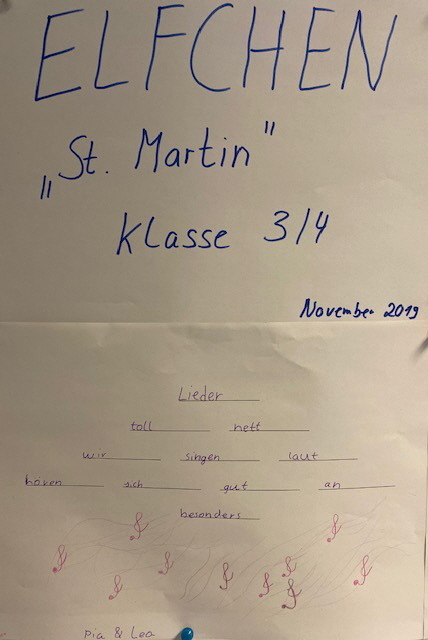 ELFCHEN
„St. Martin"
Klasse 3/4
November 2019
Lieder
toll nett
wir singen laut
hören sich gut an
besonders
Pia & Lea